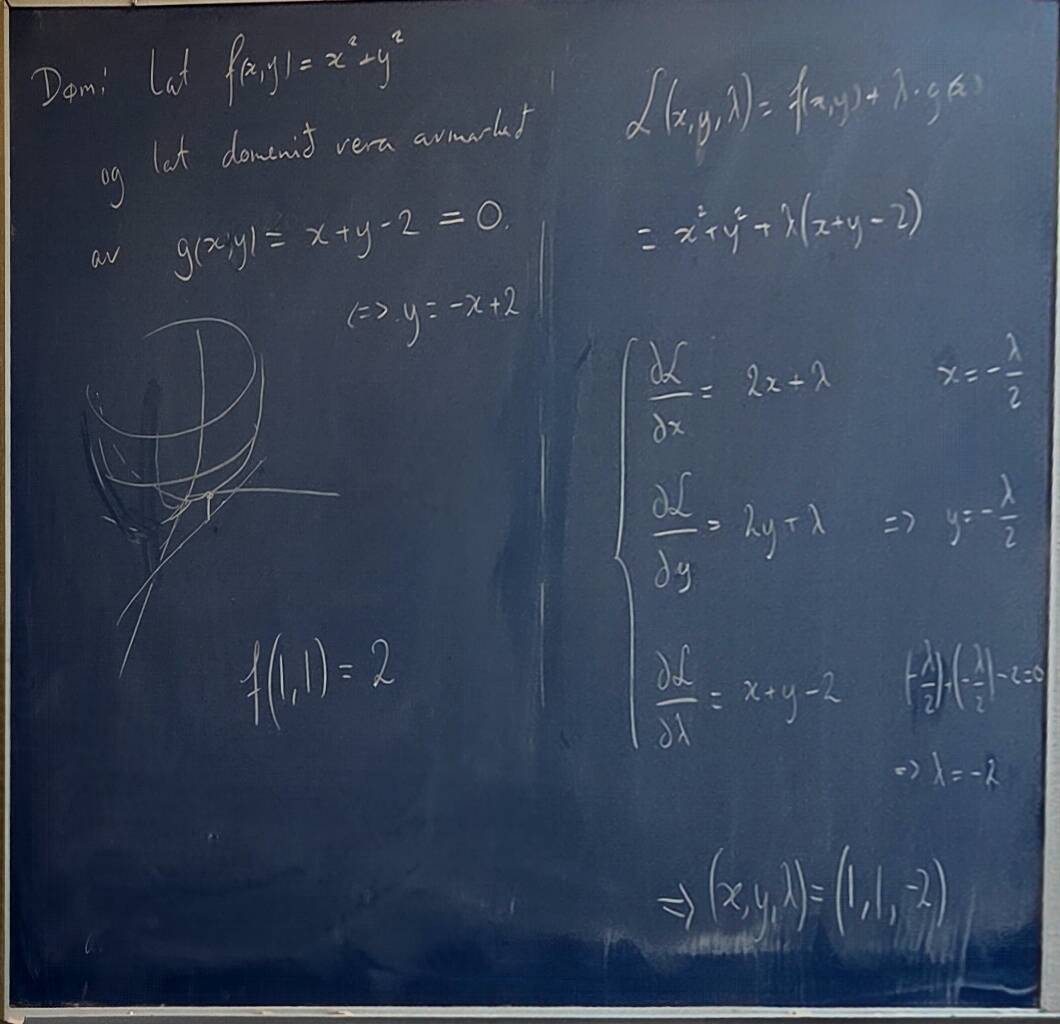 Dømi: Lat f(x,y) = x² + y²
og lat domenið vera avmarkað
av g(x,y) = x + y - 2 = 0.
<=> y = -x + 2
f(1,1) = 2
L(x,y,λ) = f(x,y) + λ · g(x)
= x² + y² + λ(x + y - 2)
∂L/∂x = 2x + λ x = -λ/2
∂L/∂y = 2y + λ => y = -λ/2
∂L/∂λ = x + y - 2 (-λ/2) + (-λ/2) - 2 = 0
=> λ = -2
=> (x,y,λ) = (1,1,-2)